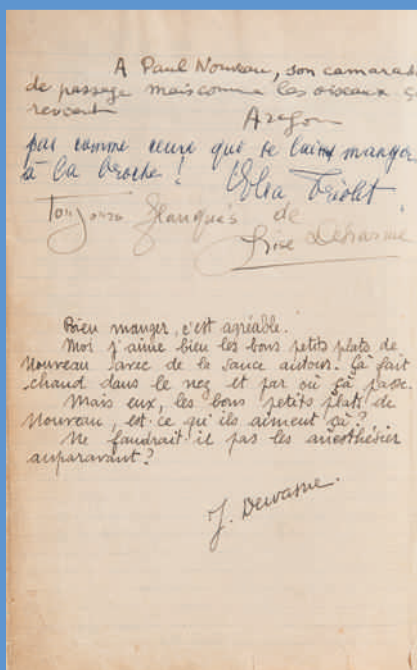 A Paul Nouveau, son camarade
de passage mais comme les oiseaux ça
revient
Aragon
pas comme ceux qui se laisse manger
à la broche ! Elsa Triolet
Toujours flanqués de
Lise Deharme
Bien manger, c'est agréable.
Moi j'aime bien les bons petits plats de
Nouveau avec de la sauce autour. Çà fait
chaud dans le nez et par où çà passe.
Mais eux, les bons petits plats de
Nouveau, est-ce qu'ils aiment çà ?
Ne faudrait-il pas les anesthésier
auparavant ?
J. Dewasne.